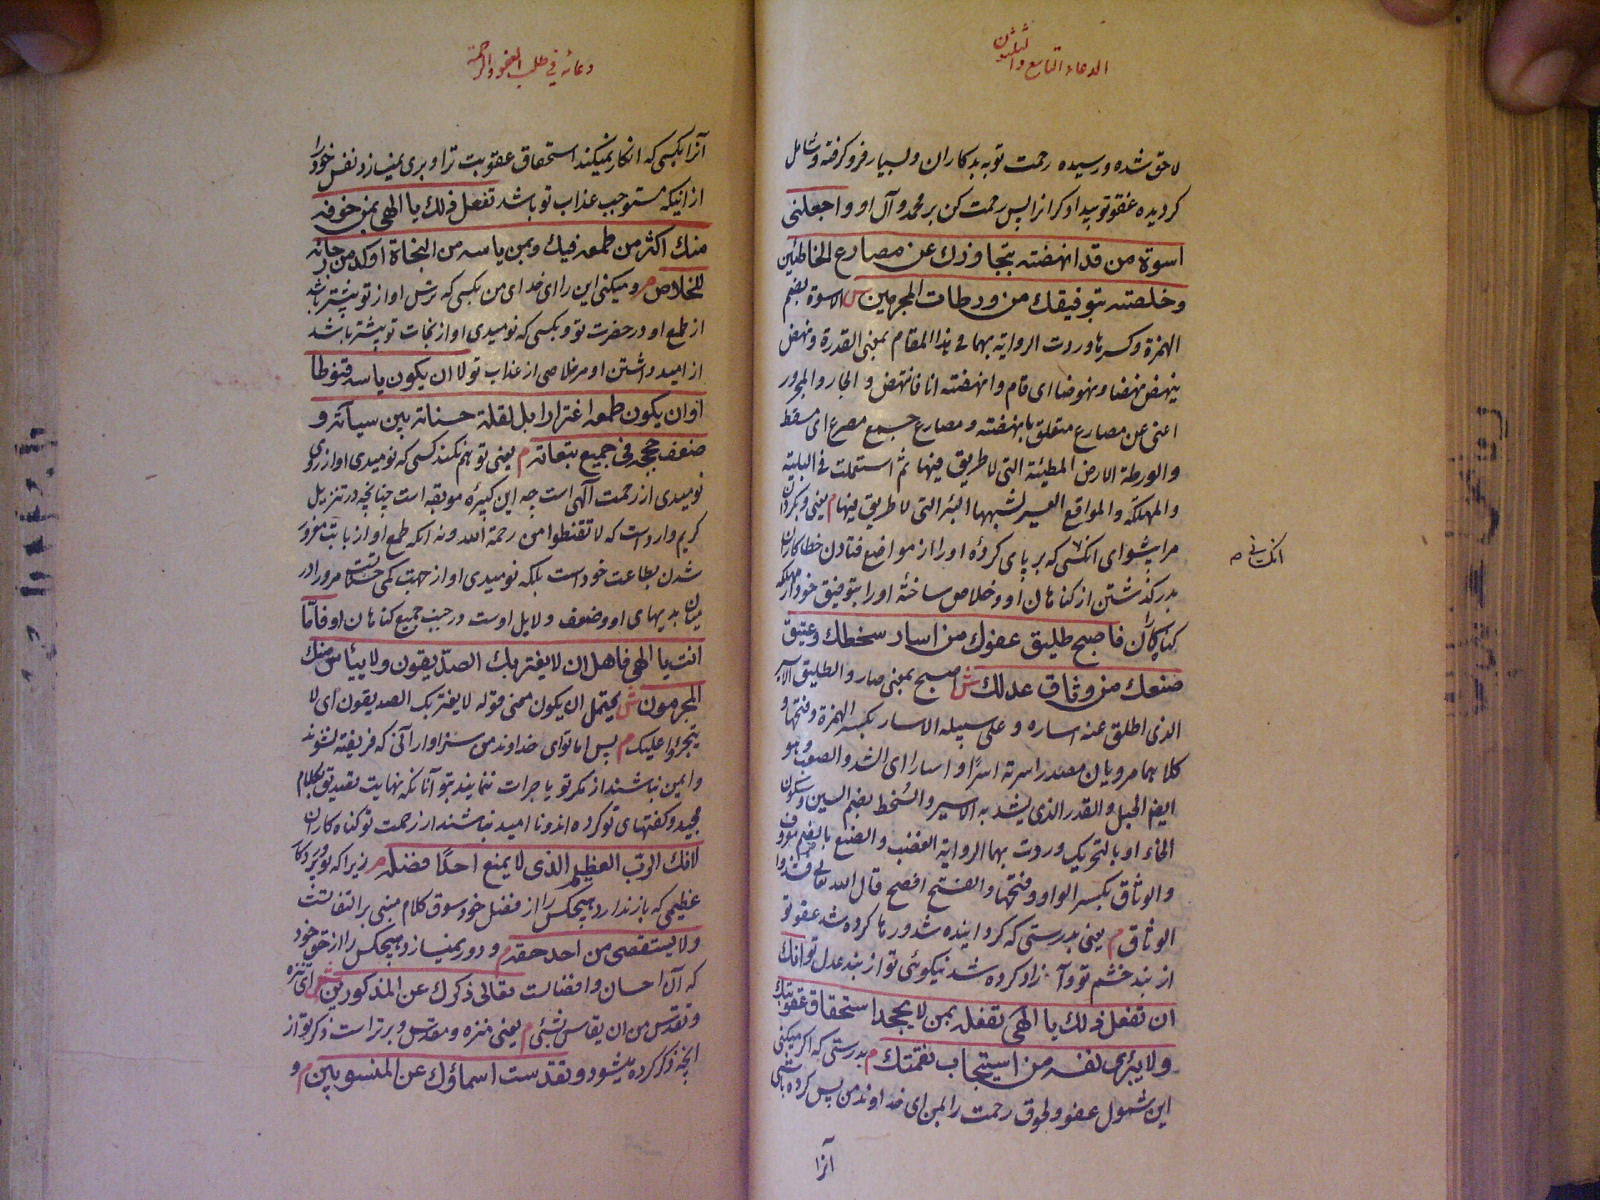 الدعاء التاسع والثلثون
لاحق شده ورسیده رحمت توبه بدکاران وبسیار فرو کرفته وشامل
کردیده عفو توبیدادکرانرا پس رحمت کن بر محمد وآل او واجعلنی
اسوة من قد انهضته بتجاوزك عن مصارع الخاطئین
وخلصته بتوفیقك من ورطات المجرمین ش الاسوة بضم
الهمزة وکسرها وردت الروایة بهما فی هذا المقام بمعنی القدرة ونهض
ینهض نهضا ونهوضا ای قام وانهضته انا فانتهض والجار والمجرور
اعنی عن مصارع متعلق بانهضته ومصارع جمع مصرع ای مسقط
والورطة الارض المطمئنة التی لا طریق فیها ثم استعملت فی البلیة
والمهلکة والمواقع العسیر لشبهها البئر التی لا طریق فیها م یعنی وبکردان
مرا پیشوای آنکسی که بر پای کردۀ اورا از مواضع فتادن خطاکاران
بدرکذشتن از کناهان او وخلاص ساختۀ اورا بتوفیق خود از مهلکه
کناهکاران فاصبح طلیق عفوك من اسار سخطك وعتیق
صنعك من وثاق عدلك ش اصبح بمعنی صار والطلیق الاسیر
الذی اطلق عنه اساره وعلی سبیله الاسار بکسر الهمزة وفتحها و
کلاهما مرویان مصدر اسرته اسرًا واسارا ای الشد والعصب وهو
ایضا الحبل والقدر الذی یشد به الاسیر والسخط بضم السین وسکون
الخاء او بالتحریك وردت بهما الروایة الغضب والصنع بالضم معروف
والوثاق بکسر الواو وفتحها والفتح افصح قال الله تعالی فشدوا
الوثاق م یعنی بدرستی که کردانیده شد ورها کرده شد عفو تو
از بند خشم تو وآزاد کرده شد نیکوئی تو از بند عدل تو انك
ان تفعل ذلك یا الهی تفعله بمن لا یجحد استحقاق عقوبتك
ولا یبرئ نفسه من استیجاب نقمتك م بدرستی که اکر میکنی
این شمول عفو ولحوق رحمت را بمن ای خداوند من پس کرده باشی
آنرا
دعائه فی طلب العفو والرحمة
آنرا بکسی که انکار نمیکند استحقاق عقوبت ترا وبری نمیسازد نفس خود را
از اینکه مستوجب عذاب تو باشد تفعل ذلك یا الهی بمن خوفه
منك اکثر من طمعه فیك وبمن یاسه من النجاة اوکد من رجائه
للخلاص م ومیکنی این را ای خدای من بکسی که ترس او از تو بیشتر باشد
از طمع او در حضرت تو وبکسی که نومیدی او از نجات تو بیشتر باشد
از امید داشتن او مر خلاصی از عذاب تو لا ان یکون یاسه قنوطا
او ان یکون طمعه اغترارا بل لقلة حسناته بین سیأته و
ضعف حججه فی جمیع تبعاته م یعنی توهم نکند کسی که نومیدی او از روی
نومیدی از رحمت آلهی است چه این کبیرۀ موبقه است چنانچه در تنزیل
کریم وارد است که لا تقنطوا من رحمة الله ونه آنکه طمع او از بابت مغرور
شدن بطاعت خود است بلکه نومیدی او از جهت کمی حسنات مر او را در
میان بدیهای او وضعف ولایل اوست در جنب جمیع کناهان او فاما
انت یا الهی فاهل ان لا یغتر بك الصدیقون ولا ییأس منك
المجرمون ش یحتمل ان یکون معنی قوله لا یغتر بك الصدیقون ای لا
یتجرؤا علیك م پس اما تو ای خداوند من سزاوار آنی که فریفته نشوند
وایمن نباشند از مکر تو یا جرات ننمایند بتو آنانکه نهایت تصدیق بکلام
مجید وکفتهای تو کرده اند ونا امید نباشند از رحمت تو کناه کاران
لانك الرب العظیم الذی لا یمنع احدًا فضله م زیرا که تو پروردکار
عظیمی که باز ندارد هیچکس را از فضل خود سوق کلام مبنی بر التفاتست
ولا یستقصی من احد حقه م ودور نمیسازد هیچکس را از حق خود
که آن احسان وافضالست تعالی ذکرك عن المذکورین ش ای تنزه
وتقدس من ان یقاس بشیء م یعنی منزه ومقدس وبرتر است ذکر تو از
آنچه ذکر کرده میشود وتقدست اسماؤك عن المنسوبین م و